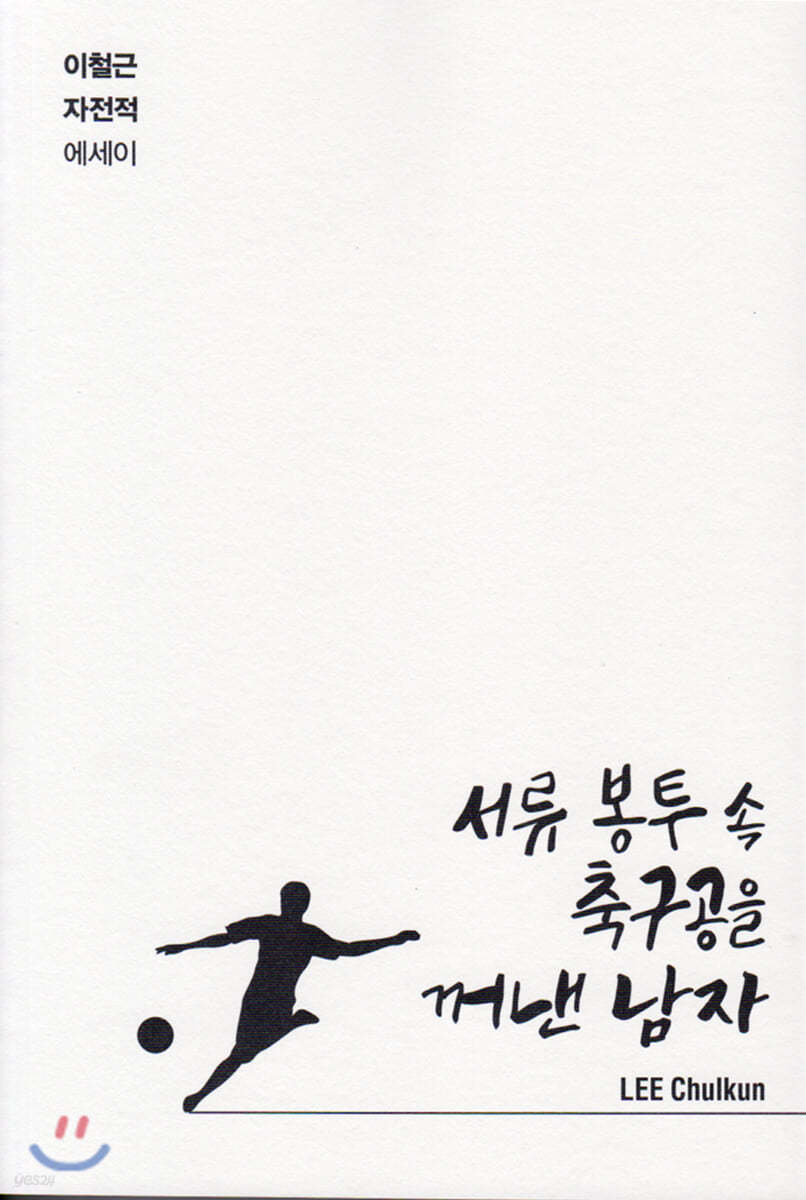 이철근
자전적
에세이
서류 봉투 속
축구공을
꺼낸 남자
LEE Chulkun
yes24